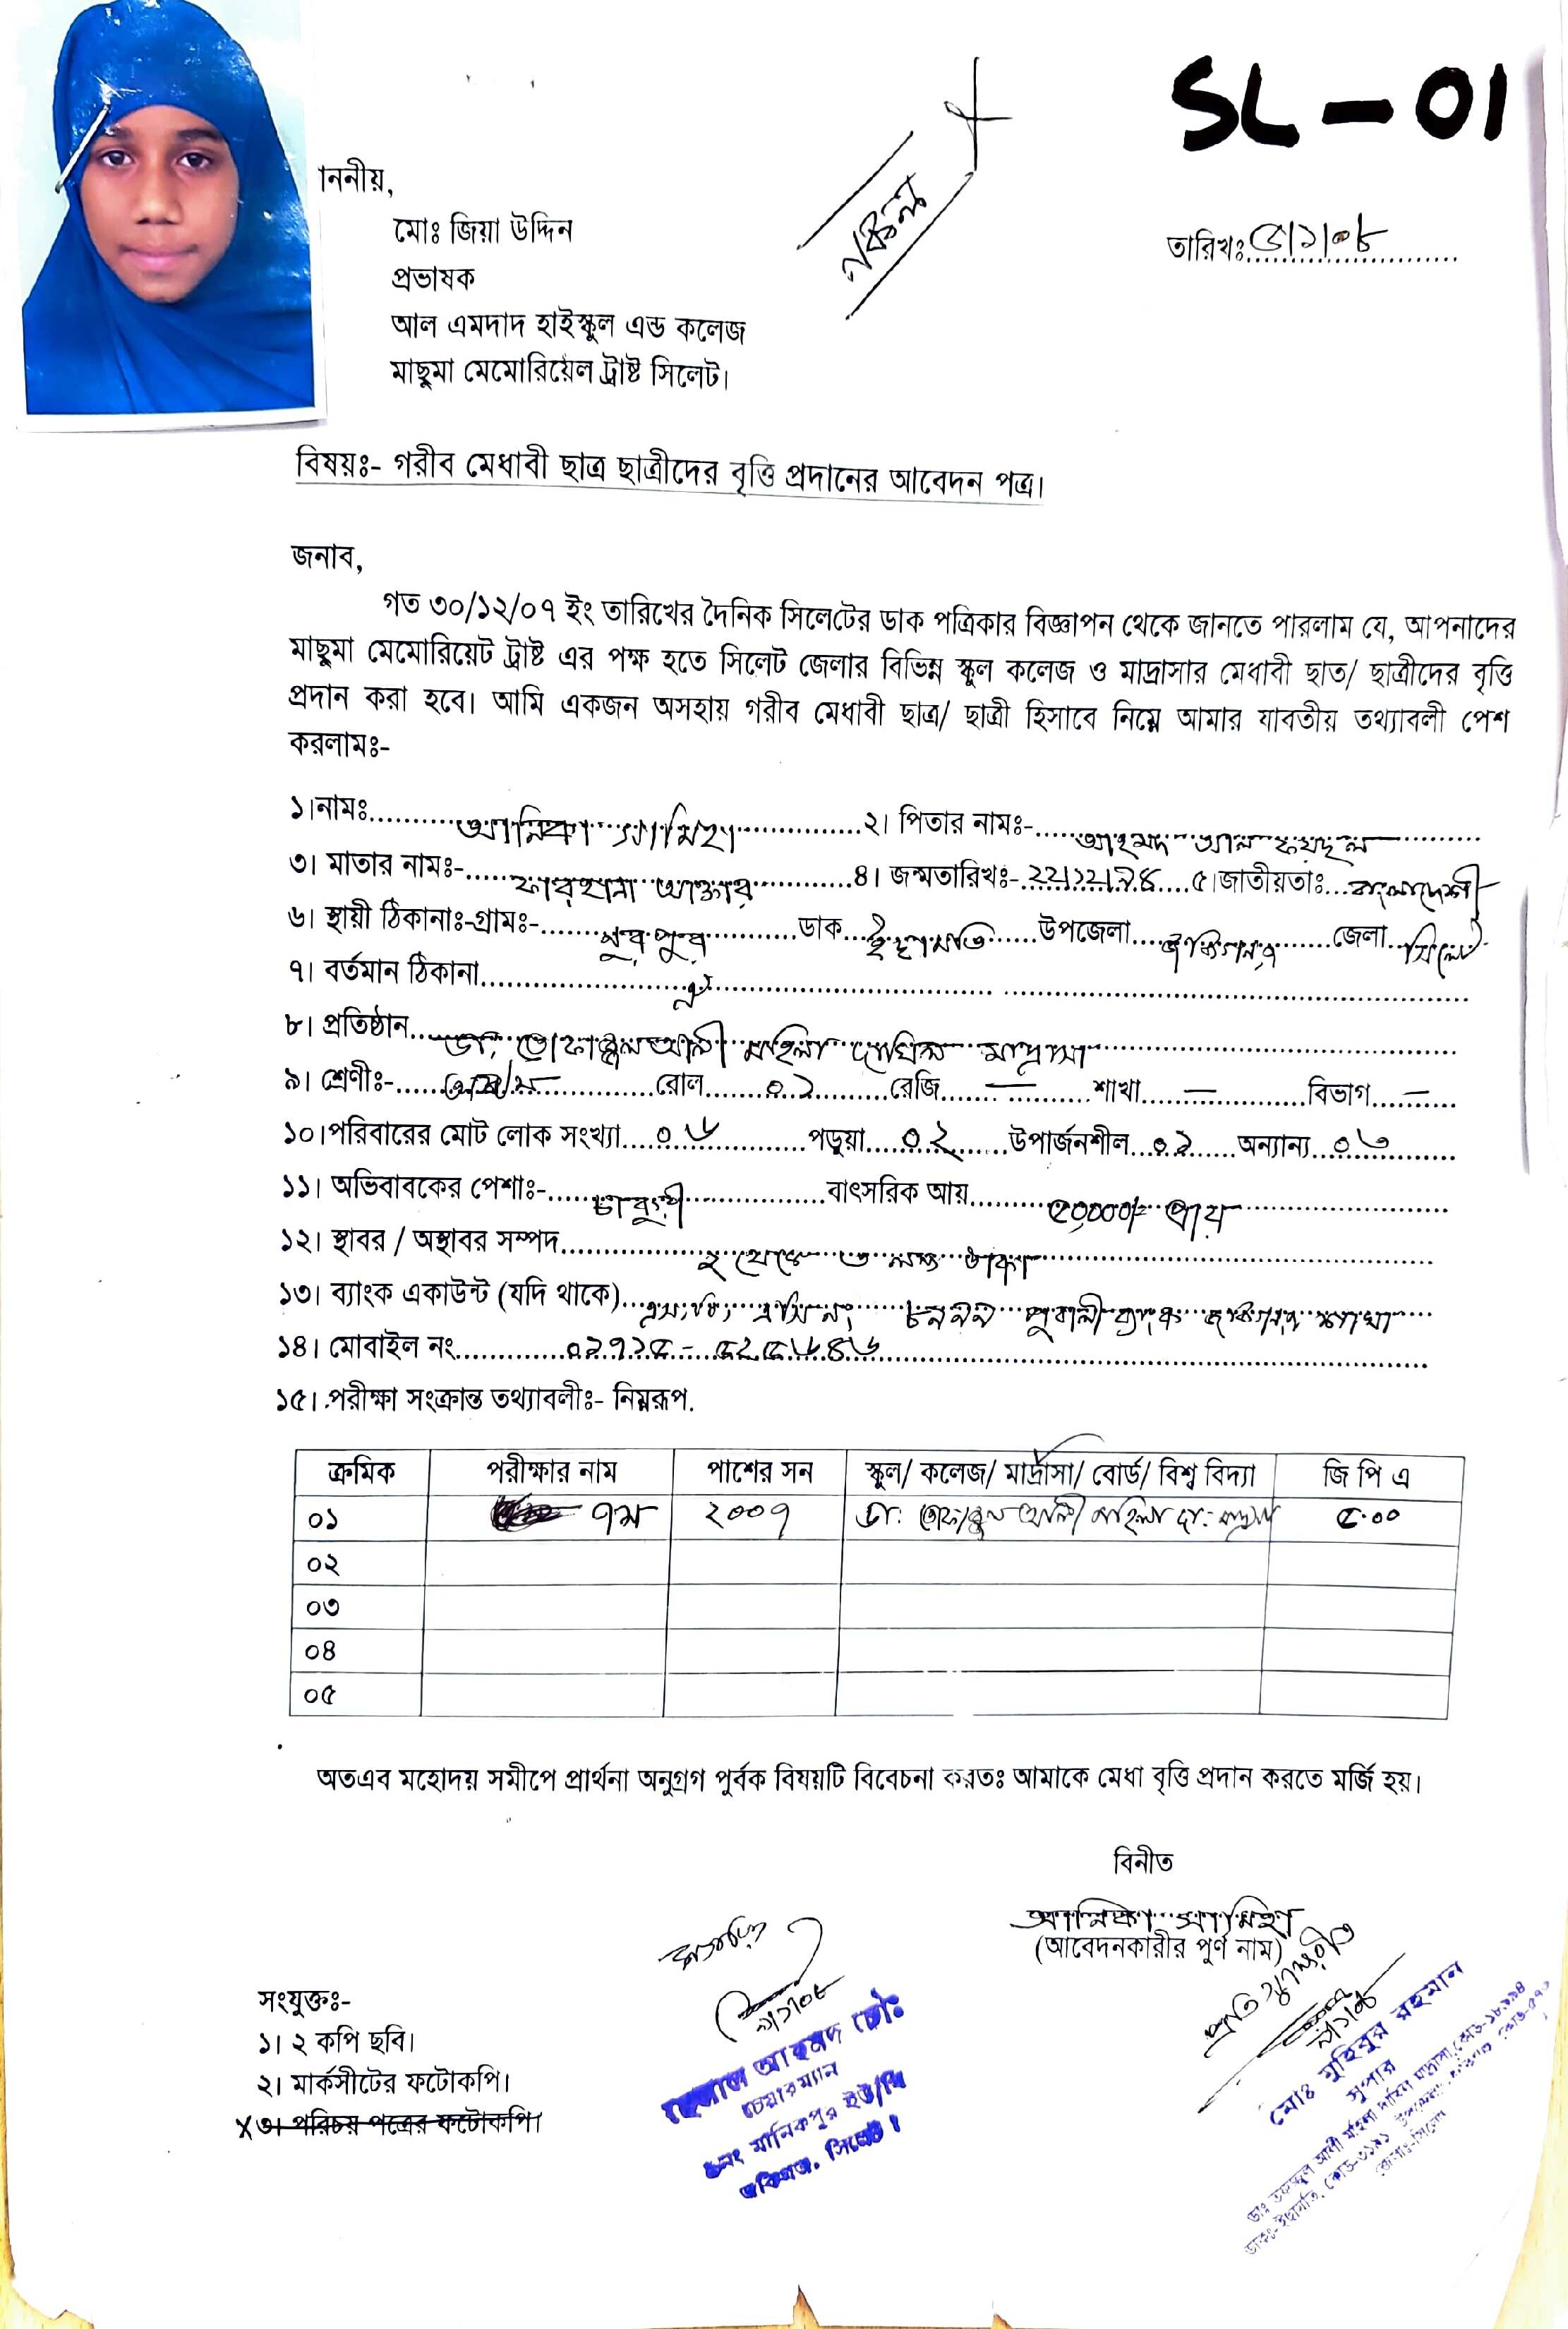 SL-01
নকল
তারিখঃ ৫/১/০৮
াননীয়,
মোঃ জিয়া উদ্দিন
প্রভাষক
আল এমদাদ হাইস্কুল এন্ড কলেজ
মাছুমা মেমোরিয়েল ট্রাষ্ট সিলেট।
বিষয়ঃ- গরীব মেধাবী ছাত্র ছাত্রীদের বৃত্তি প্রদানের আবেদন পত্র।
জনাব,
গত ৩০/১২/০৭ ইং তারিখের দৈনিক সিলেটের ডাক পত্রিকার বিজ্ঞাপন থেকে জানতে পারলাম যে, আপনাদের
মাছুমা মেমোরিয়েট ট্রাষ্ট এর পক্ষ হতে সিলেট জেলার বিভিন্ন স্কুল কলেজ ও মাদ্রাসার মেধাবী ছাত/ ছাত্রীদের বৃত্তি
প্রদান করা হবে। আমি একজন অসহায় গরীব মেধাবী ছাত্র/ ছাত্রী হিসাবে নিম্নে আমার যাবতীয় তথ্যাবলী পেশ
করলামঃ-
১।নামঃ আনিকা সামিহা ২। পিতার নামঃ- আহমদ আল কয়ছল
৩। মাতার নামঃ- ফারহানা আক্তার ৪। জন্মতারিখঃ- ২২/১২/৯৪ ৫।জাতীয়তাঃ বাংলাদেশী
৬। স্থায়ী ঠিকানাঃ-গ্রামঃ- ডাক ইছামতি উপজেলা জকিগঞ্জ জেলা সিলেট
৭। বর্তমান ঠিকানা ঐ
৮। প্রতিষ্ঠান ডা. তোফাজ্জুল আলী মহিলা দাখিল মাদ্রাসা
৯। শ্রেণীঃ- রোল ০১ রেজি — শাখা — বিভাগ —
১০।পরিবারের মোট লোক সংখ্যা ০৬ পড়ুয়া ০২ উপার্জনশীল ০১ অন্যান্য ০৩
১১। অভিবাবকের পেশাঃ- চাকুরী বাৎসরিক আয় ৫০,০০০/= প্রায়
১২। স্থাবর / অস্থাবর সম্পদ ২ থেকে ৩ লক্ষ টাকা
১৩। ব্যাংক একাউন্ট (যদি থাকে) পুবালী ব্যাংক জকিগঞ্জ শাখা
১৪। মোবাইল নং ০১৭১৫-৫২৫৬৪৬
১৫। পরীক্ষা সংক্রান্ত তথ্যাবলীঃ- নিম্নরূপ.
ক্রমিক পরীক্ষার নাম পাশের সন স্কুল/ কলেজ/ মার্দ্রাসা/ বোর্ড/ বিশ্ব বিদ্যা জি পি এ
০১ ৭ম ২০০৭ ডা: তোফাজ্জুল আলী মহিলা দা: মাদ্রাসা ৫.০০
০২
০৩
০৪
০৫
অতএব মহোদয় সমীপে প্রার্থনা অনুগ্রগ পুর্বক বিষয়টি বিবেচনা করতঃ আমাকে মেধা বৃত্তি প্রদান করতে মর্জি হয়।
বিনীত
আনিকা সামিহা
(আবেদনকারীর পুর্ণ নাম)
সংযুক্তঃ-
১। ২ কপি ছবি।
২। মার্কসীটের ফটোকপি।
X৩। পরিচয় পত্রের ফটোকপি।
৯/১/০৮
হেলাল আহমদ চৌঃ
চেয়ারম্যান
৮নং মানিকপুর ইউ/পি
জকিগঞ্জ, সিলেট।
প্রতিস্বাক্ষরিত
৯/১/০৮
মোঃ মুহিবুর রহমান
সুপার